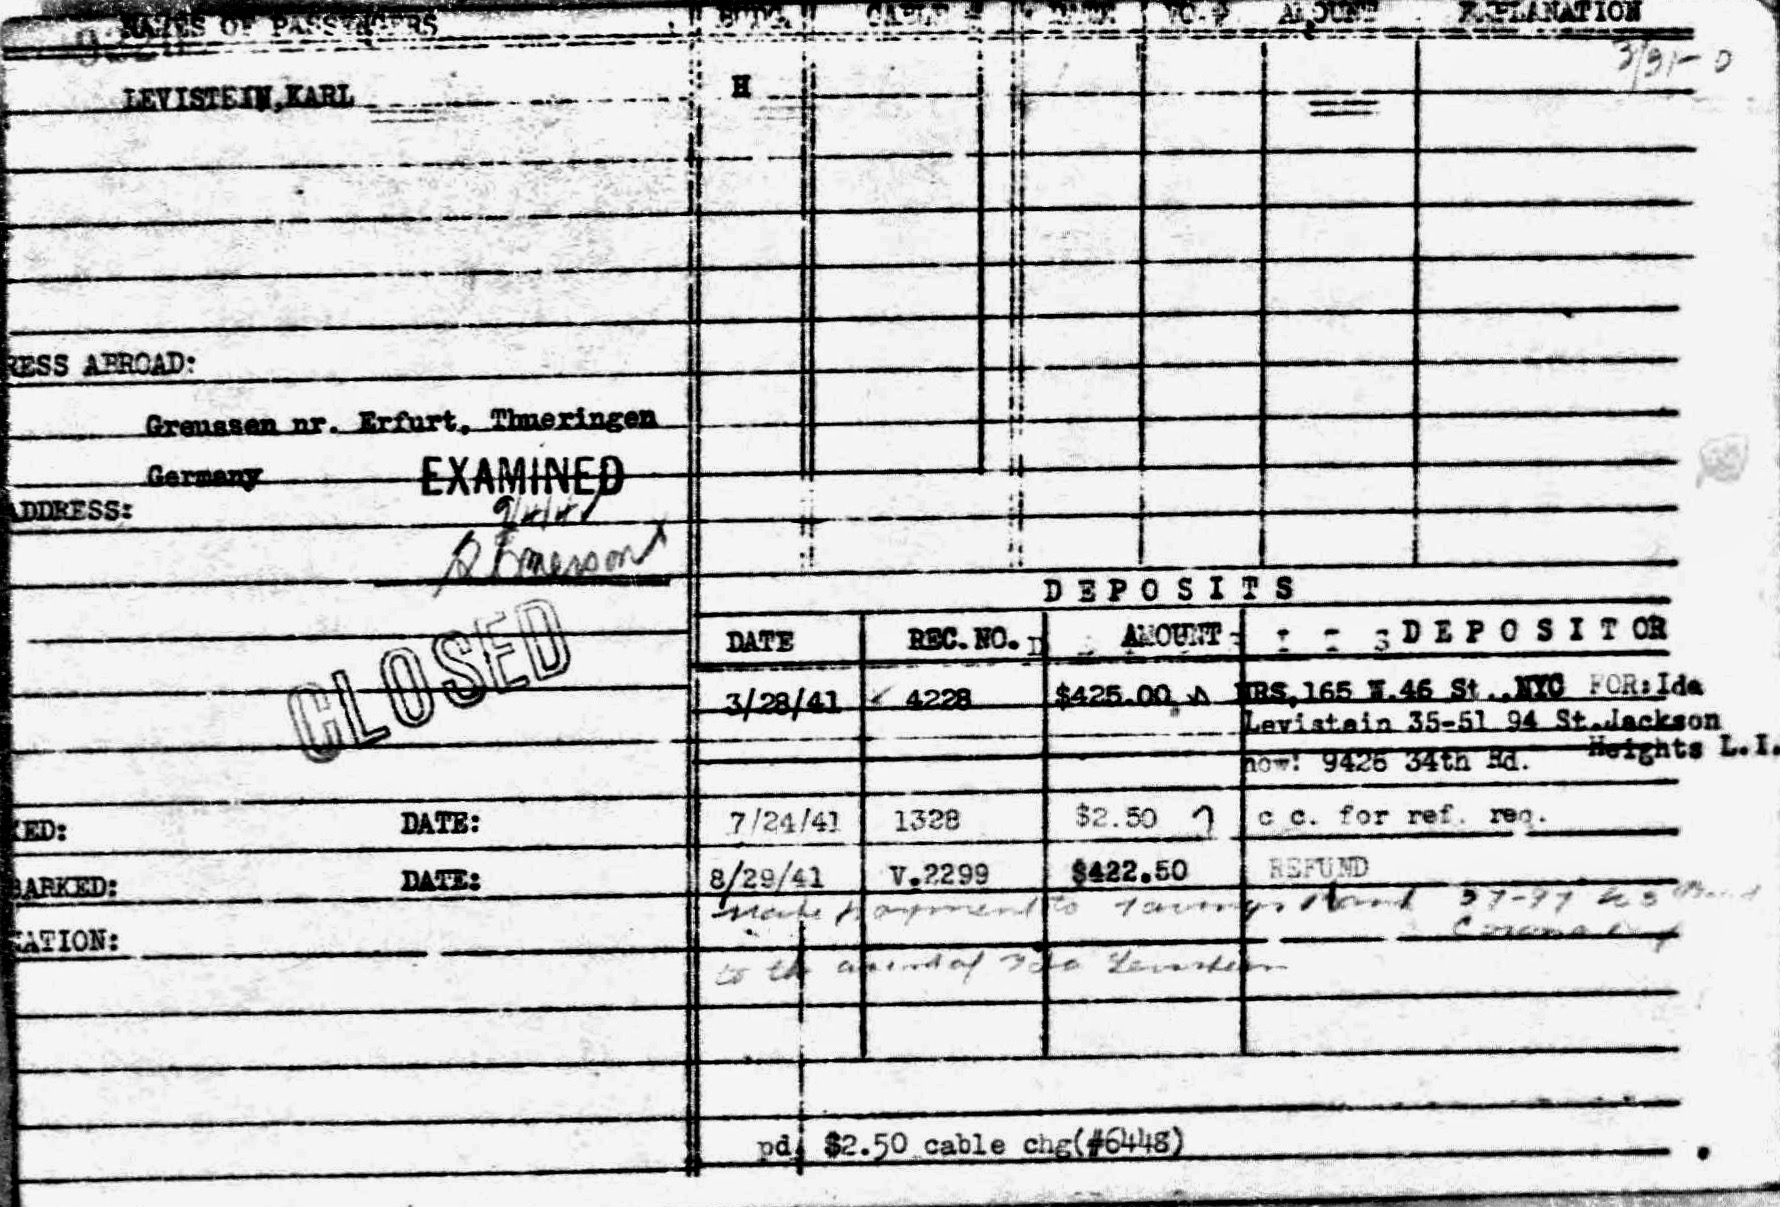 NAMES OF PASSENGERS BKDG. CABLE # DATE VO.# AMOUNT EXPLANATION
3/31-0
LEVISTEIN, KARL H
RESS ABROAD:
Greussen nr. Erfurt, Thueringen
Germany EXAMINED
ADDRESS:
Emerson
DEPOSITS
DATE REC. NO. AMOUNT DEPOSITOR
CLOSED
3/28/41 4228 $425.00 HRS, 165 W. 46 St., NYC FOR: Ida
Levistein 35-51 94 St. Jackson
Heights L.I.
now: 9426 34th Rd.
KED: DATE: 7/24/41 1328 $2.50 c c. for ref. req.
BARKED: DATE: 8/29/41 V.2299 $422.50 REFUND
Make payment to Savings Bank 37-97
Corona
KATION:
to the of Ida Levistein
pd. $2.50 cable chg(#6448)